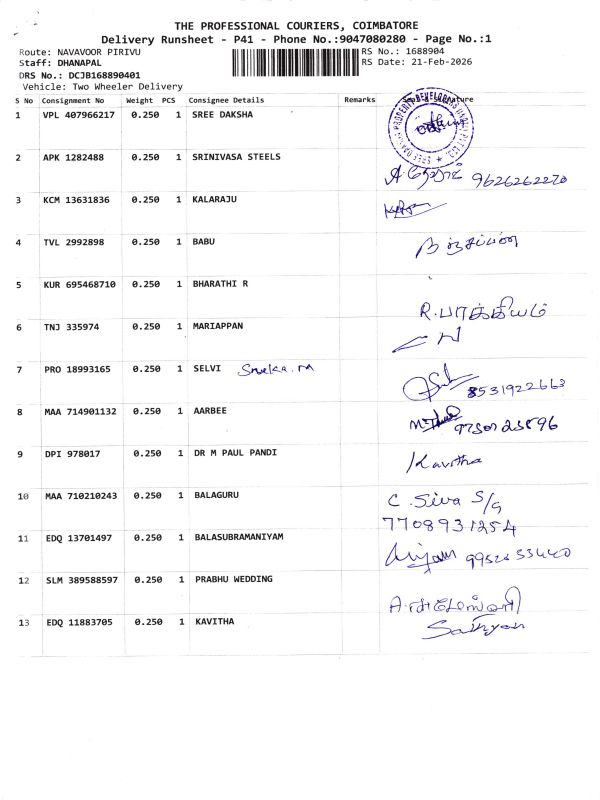 THE PROFESSIONAL COURIERS, COIMBATORE
Delivery Runsheet - P41 - Phone No.:9047080280 - Page No.:1
Route: NAVAVOOR PIRIVU RS No.: 1688904
Staff: DHANAPAL RS Date: 21-Feb-2026
DRS No.: DCJB168890401
Vehicle: Two Wheeler Delivery
S No Consignment No Weight PCS Consignee Details Remarks
1 VPL 407966217 0.250 1 SREE DAKSHA
2 APK 1282488 0.250 1 SRINIVASA STEELS
9626262270
3 KCM 13631836 0.250 1 KALARAJU
4 TVL 2992898 0.250 1 BABU
5 KUR 695468710 0.250 1 BHARATHI R
R.பாக்கியம்
6 TNJ 335974 0.250 1 MARIAPPAN
7 PRO 18993165 0.250 1 SELVI
8531922663
8 MAA 714901132 0.250 1 AARBEE
9 DPI 978017 0.250 1 DR M PAUL PANDI
Kavitha
10 MAA 710210243 0.250 1 BALAGURU
C. Siva S/G
7708931254
11 EDQ 13701497 0.250 1 BALASUBRAMANIYAM
12 SLM 389588597 0.250 1 PRABHU WEDDING
13 EDQ 11883705 0.250 1 KAVITHA
Sathyan